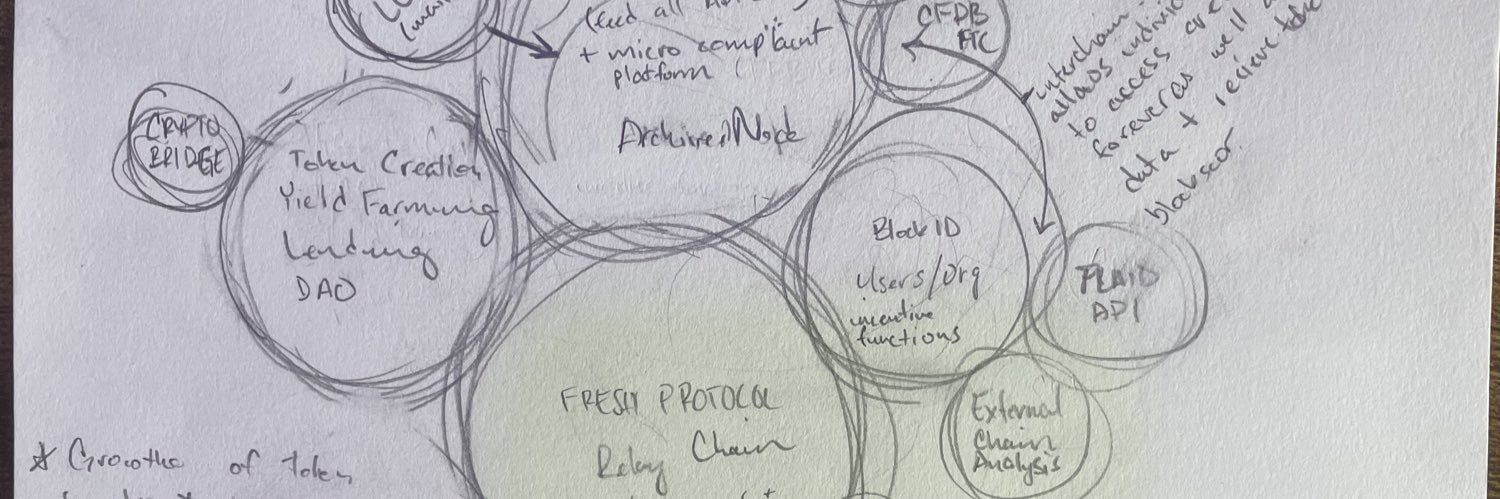 (feed all
+ micro complaint
platform
Archive/Node
CFPB
FTC
interchain
allows individ
to access
forever as well
data + recieve
blockscor
CRYPTO
BRIDGE
Token Creation
Yield Farming
Lending
DAO
Block ID
Users/Org
incentive
functions
PLAID
API
FRESH PROTOCOL
Relay Chain
External
Chain
Analysis
* Growth of Token